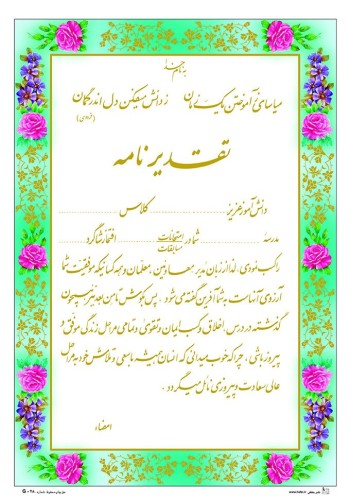 به نام خدا
میاسای ز آموختن یک زمان ز دانش میفکن دل اندر گمان
(فردوسی)
تقدیرنامه
دانش آموز عزیز ............ کلاس ............
مدرسه ............ شما در امتحانات مسابقات ............ افتخار شاگرد ............
را کسب نمودی، لذا از زبان مدیر، معاونین، معلمان و همه کسانیکه موفقیت شما
آرزوی آنهاست به شما آفرین گفته می شود. پس بکوش تا من بعد نیز همچون
گذشته در درس، اخلاق و کسب ایمان و تقوی و تمامی مراحل زندگی موفق و
پیروز باشی، چرا که خوب میدانی که انسان همیشه با سعی و تلاش خود به مراحل
عالی سعادت و پیروزی نائل میگردد.
امضاء